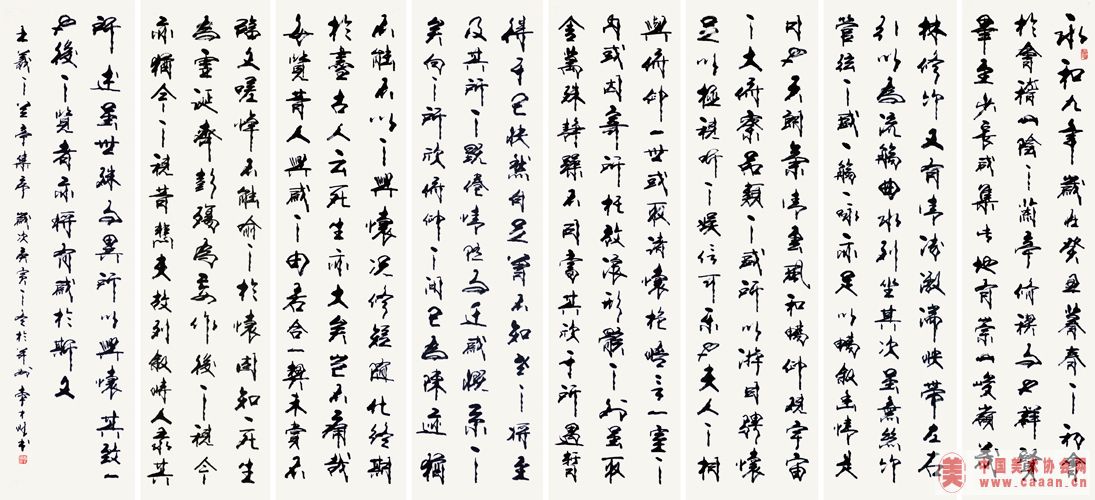 永和九年歲在癸丑暮春之初會
於會稽山陰之蘭亭脩禊事也群賢
畢至少長咸集此地有崇山峻嶺茂
林修竹又有清流激湍映帶左右
引以為流觴曲水列坐其次雖無絲竹
管弦之盛一觴一詠亦足以暢敘幽情是
日也天朗氣清惠風和暢仰觀宇宙
之大俯察品類之盛所以游目騁懷
足以極視聽之娛信可樂也夫人之相
與俯仰一世或取諸懷抱悟言一室之
內或因寄所託放浪形骸之外雖取
舍萬殊靜躁不同當其欣於所遇暫
得於己快然自足曾不知老之將至
及其所之既倦情隨事遷感慨係之
矣向之所欣俯仰之間已為陳迹猶
不能不以之興懷況修短隨化終期
於盡古人云死生亦大矣豈不痛哉
每覽昔人興感之由若合一契未嘗不
臨文嗟悼不能喻之於懷固知一死生
為虛誕齊彭殤為妄作後之視今
亦猶今之視昔悲夫故列敘時人錄其
所述雖世殊事異所以興懷其致一
也後之覽者亦將有感於斯文
王羲之蘭亭集序 歲次庚寅之冬於
美 中国美术协会网
www.caaan.cn